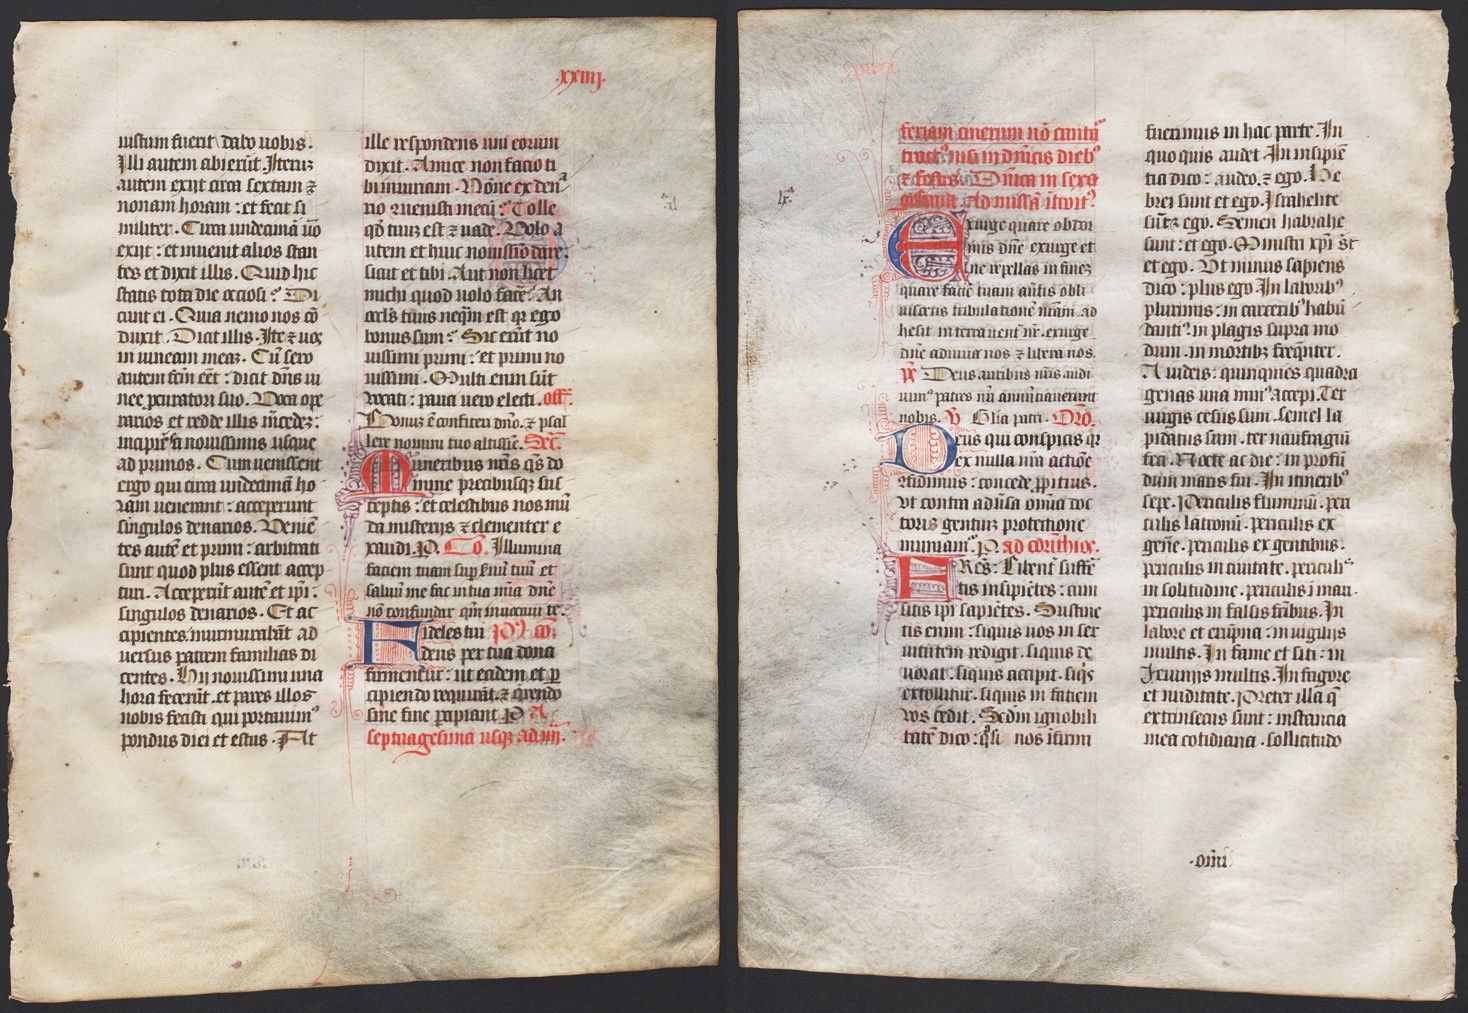 .xxiiij.
iustum fuerit dabo uobis.
Illi autem abierūt. Iteruꝫ
autem exijt circa sextam ⁊
nonam horam: et fecit si
militer. Circa undecimā uo
exijt: et inuenit alios stan
tes et dixit illis. Quid hic
statis tota die ociosi? Di
cunt ei. Quia nemo nos cō
duxit. Dicit illis. Ite ⁊ uos
in uineam meaꝫ. Cū sero
autem fcm eēt: dicit dn̄s ui
nee procuratori suo. Voca ope
rarios et redde illis m̄cedeꝫ:
incipiēs a nouissimis usque
ad primos. Cum uenissent
ergo qui circa undecimā ho
ram uenerant: acceperunt
singulos denarios. Veniē
tes autē et primi: arbitrati
sunt quod plus essent accep
turi. Acceperūt autē et ip̄i:
singulos denarios. Et ac
cipientes murmurabāt ad
uersus patrem familias di
centes. Hij nouissimi una
hora fecerūt. et pares illos
nobis fecisti qui portauimꝰ
pondus diei et estus. At
ille respondens uni eorum
dixit. Amice non facio ti
bi iniuriam. Nōne ex dena
rio ꝯuenisti mecū? Tolle
qd̄ tuuꝫ est ⁊ uade. Volo a
utem et huic nouissimo dare:
sicut et tibi. Aut non licet
michi quod uolo face? An
ocl̄s tuus neqm̄ est qr ego
bonus sum? Sic erūt no
uissimi primi: et primi no
uissimi. Multi enim sūt
vocati: pauci uero electi. off.
Bonuꝫ ē confiteri dn̄o. ⁊ psal
lere nomini tuo altissīe. Secr̄.
Muneribus nr̄is qs̄ do
mine precibusqꝫ sus
ceptis: et celestibus nos mū
da misterijs ⁊ clementer e
xaudi. P. Co. Illumina
faciem tuam sup seruū tuū et
saluū me fac in tua mīa dn̄e
nō confundar qm̄ inuocaui te.
Fideles tui P9 com̄
deus per tua dona
firmentur: ut eadem et p
cipiendo requirāt. ⁊ querendo
sine fine percipiant P A
septuagesima usqꝫ ad iiij.
feriam cinerum nō cantat̄
tractꝰ nisi in dn̄icis diebꝰ
⁊ festis. Dn̄ica in sexa
gesima. Ad missā ītroitꝰ
Exurge quare obdor
mis dn̄e exurge et
ne repellas in fineꝫ
quare faciē tuam auertis obli
uisceris tribulationē nr̄am. ad
hesit in terra uenter nr̄. exurge
dn̄e adiuua nos ⁊ libera nos.
Ps Deus auribus nr̄is audi
uimꝰ patres nr̄i annūciauerunt
nobis. V Glia patri. Oro.
Deus qui conspicis qr
ex nulla nr̄a actiōe
ꝯfidimus: concede propitius.
Ut contra aduersa om̄ia doc
toris gentiuꝫ protectione
muniamꝰ. P. ad corinthios.
FRēs: Libenter suffer
tis insipiētes: cum
sitis ip̄i sapiētes. Sustine
tis enim: siquis uos in ser
uitutem redigit. siquis de
uorat. siquis accipit. siqs
extollitur. siquis in faciem
vos cedit. Scdm ignobili
tatē dico: qasi nos īfirmi
fuerimus in hac parte. In
quo quis audet. In insipiē
tia dico: audeo. ⁊ ego. He
brei sunt et ego. Israhelite
sūt ⁊ ego. Semen habrahe
sunt: et ego. Ministri xp̄i st̄
et ego. Ut minus sapiens
dico: plus ego. In laboribꝰ
plurimis: in carceribꝰ habū
dantiꝰ. in plagis supra mo
dum. in mortibꝫ freqn̄ter.
A iudeis: quinquies quadra
genas una minꝰ accepi. Ter
uirgis cesus sum. Semel la
pidatus sum. ter naufragiū
feci. Nocte ac die: in profū
dum maris fui. In itineribꝰ
sepe. Periculis fluminū. peri
culis latronū. periculis ex
gen̄e. periculis ex gentibus.
periculis in ciuitate. periculis
in solitudine. periculis ī mari.
periculis in falsis fr̄ibus. In
labore et erūpna: in uigilijs
multis. In fame et siti: in
Ieiunijs multis. In frigore
et nuditate. Preter illa q̄
extrinsecus sunt: instancia
mea cotidiana. sollicitudo
.om̄i